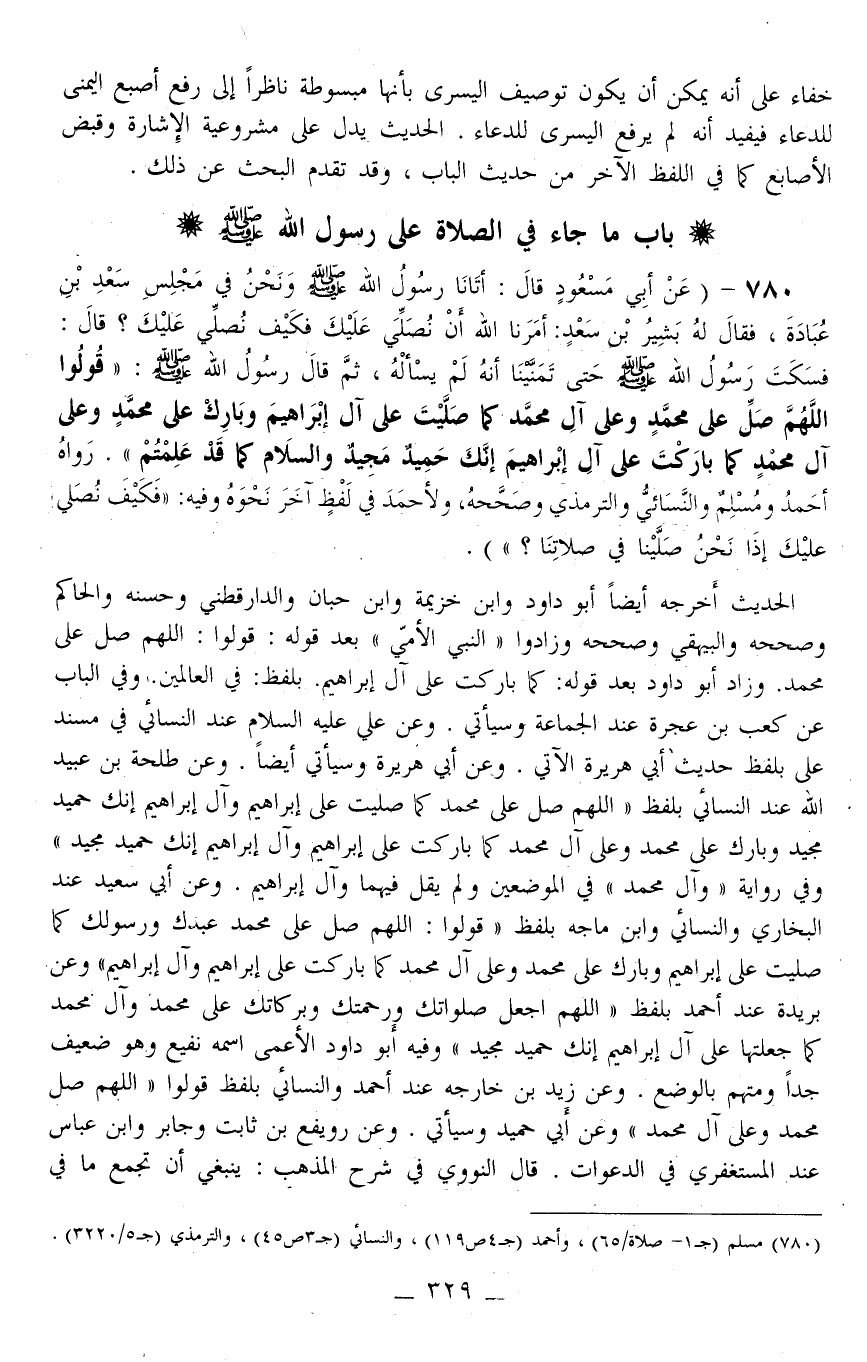 خفاء على أنه يمكن أن يكون توصيف اليسرى بأنها مبسوطة ناظراً إلى رفع أصبع اليمنى
للدعاء فيفيد أنه لم يرفع اليسرى للدعاء . الحديث يدل على مشروعية الإشارة وقبض
الأصابع كما في اللفظ الآخر من حديث الباب ، وقد تقدم البحث عن ذلك .
❋ باب ما جاء في الصلاة على رسول الله ﷺ ❋
٧٨٠ - ( عَنْ أبِي مَسْعُودٍ قالَ : أتَانَا رسُولُ الله ﷺ وَنَحْنُ في مَجْلِسِ سَعْدِ بْنِ
عُبَادَةَ ، فقالَ لهُ بَشِيرُ بْن سَعْدٍ: أمَرَنا الله أَنْ نُصَلِّي عَلَيْكَ فكَيْف نُصلِّي عَلَيْكَ ؟ قالَ :
فسَكَتَ رَسُولُ الله ﷺ حَتى تَمَنَّيْنَا أنهُ لَمْ يسْألْهُ ، ثمَّ قالَ رسُولُ الله ﷺ : « قُولُوا
اللَّهُمَّ صَلِّ على محمَّدٍ وعلى آلِ محمَّد كما صَلَّيْتَ على آل إبْرَاهيمَ وبَارِكْ على محمَّدٍ وعلى
آل محمْدٍ كما بارَكْتَ على آلِ إبْراهيمَ إنَّكَ حَميدٌ مَجِيدٌ والسلَام كما قَدْ عَلِمْتُمْ » . رَواهُ
أحَمدُ ومُسْلِمٌ والنَّسَائيُّ والترمذي وصَحَّحهُ، ولأحمَدَ في لَفْظٍ آخَرَ نَحْوَهُ وفيه: «فَكَيْفَ نُصَلي
عليْكَ إذَا نَحْنُ صَلَّيْنا في صلاتِنَا ؟ » ) .
الحديث أخرجه أيضاً أبو داود وابن خزيمة وابن حبان والدارقطني وحسنه والحاكم
وصححه والبيهقي وصححه وزادوا « النبي الأمّي » بعد قوله : قولوا : اللهم صل على
محمد. وزاد أبو داود بعد قوله: كما باركت على آل إبراهيم. بلفظ: في العالمين. وفي الباب
عن كعب بن عجرة عند الجماعة وسيأتي . وعن علي عليه السلام عند النسائي في مسند
علي بلفظ حديث أبي هريرة الآتي . وعن أبي هريرة وسيأتي أيضاً . وعن طلحة بن عبيد
الله عند النسائي بلفظ « اللهم صل على محمد كما صليت على إبراهيم وآل إبراهيم إنك حميد
مجيد وبارك على محمد وعلى آل محمد كما باركت على إبراهيم وآل إبراهيم إنك حميد مجيد »
وفي رواية « وآل محمد » في الموضعين ولم يقل فيهما وآل إبراهيم . وعن أبي سعيد عند
البخاري والنسائي وابن ماجه بلفظ « قولوا : اللهم صل على محمد عبدك ورسولك كما
صليت على إبراهيم وبارك على محمد وعلى آل محمد كما باركت على إبراهيم وآل إبراهيم» وعن
بريدة عند أحمد بلفظ « اللهم اجعل صلواتك ورحمتك وبركاتك على محمد وآل محمد
كما جعلتها على آل إبراهيم إنك حميد مجيد » وفيه أبو داود الأعمى اسمه نفيع وهو ضعيف
جداً ومتهم بالوضع . وعن زيد بن خارجه عند أحمد والنسائي بلفظ قولوا « اللهم صل
محمد وعلى آل محمد » وعن أبي حميد وسيأتي . وعن رويفع بن ثابت وجابر وابن عباس
عند المستغفري في الدعوات . قال النووي في شرح المذهب : ينبغي أن تجمع ما في
(٧٨٠) مسلم (جـ١- صلاة/٦٥) ، وأحمد (جـ٤ص١١٩) ، والنسائي (جـ٣ص٤٥) ، والترمذي (جـ٣٢٢٠/٥) .
ـ ٣٢٩ ـ